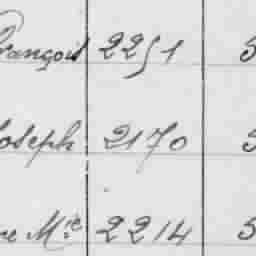 François 2251 5
Joseph 2170 5
ne M^ie 2214 5